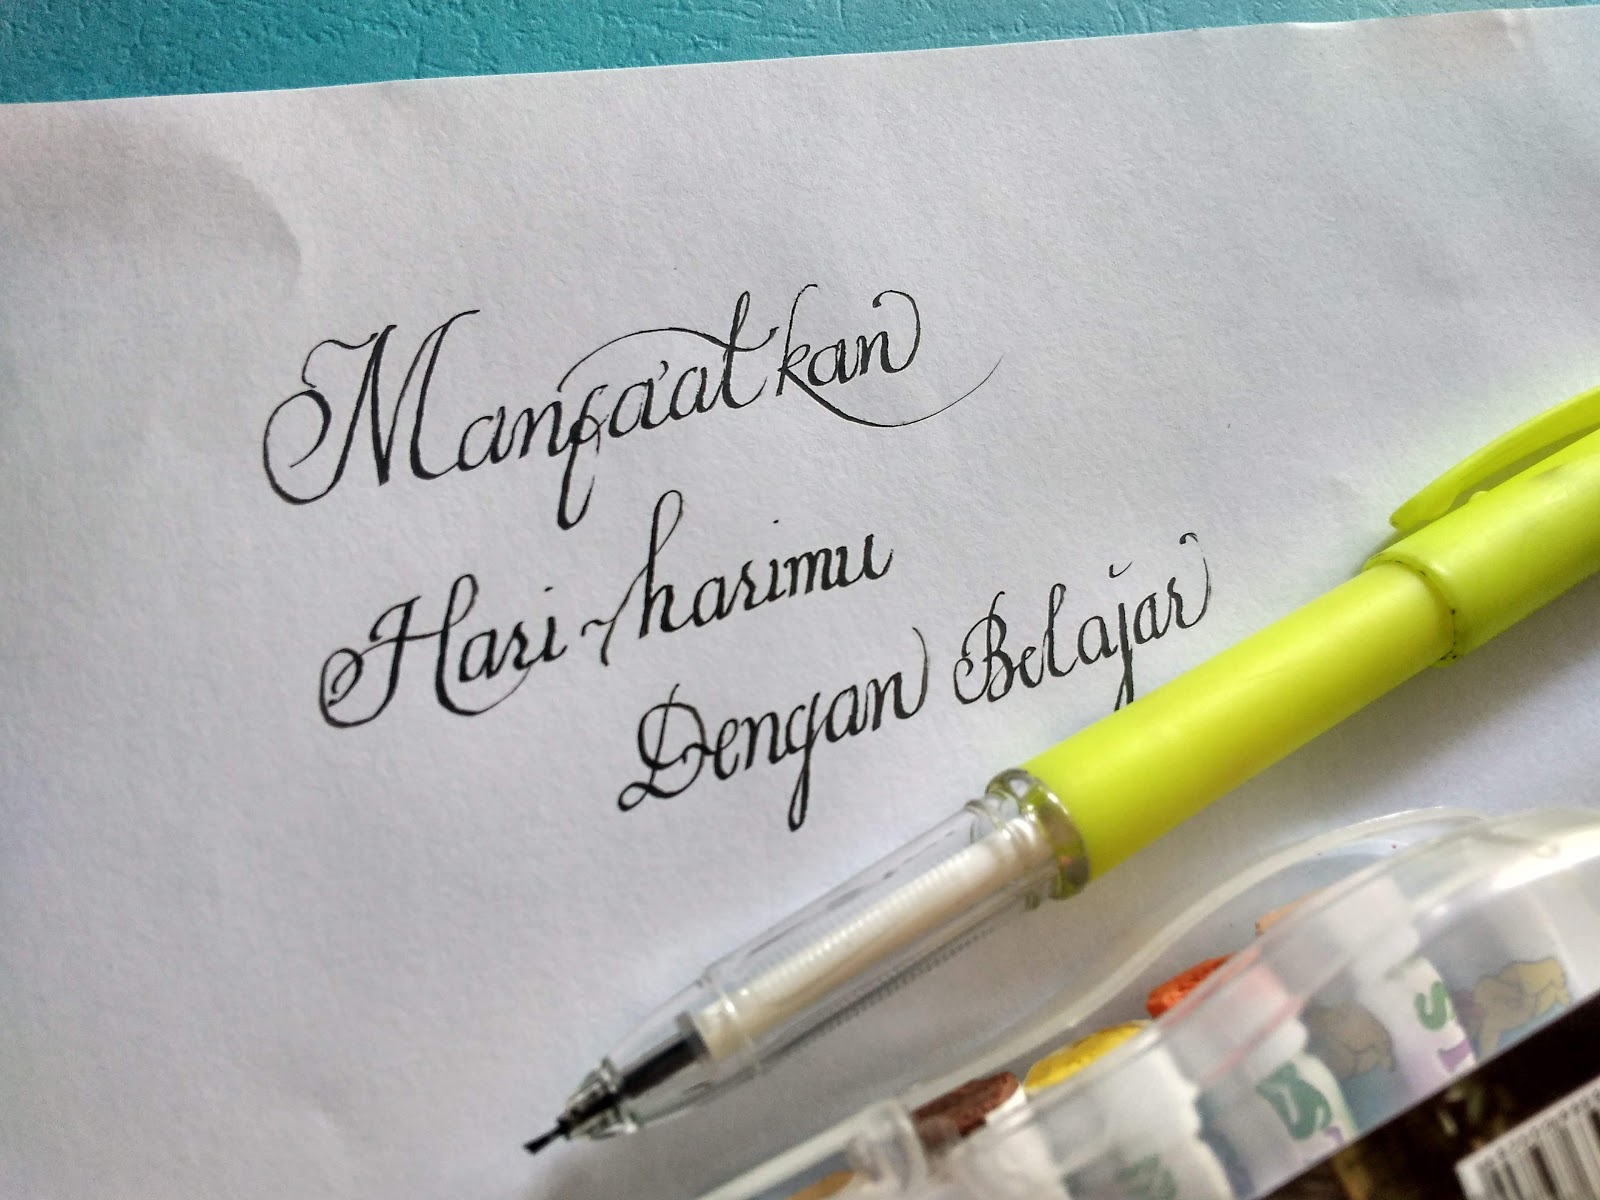 Manfa'atkan
Hari-harimu
Dengan Belajar